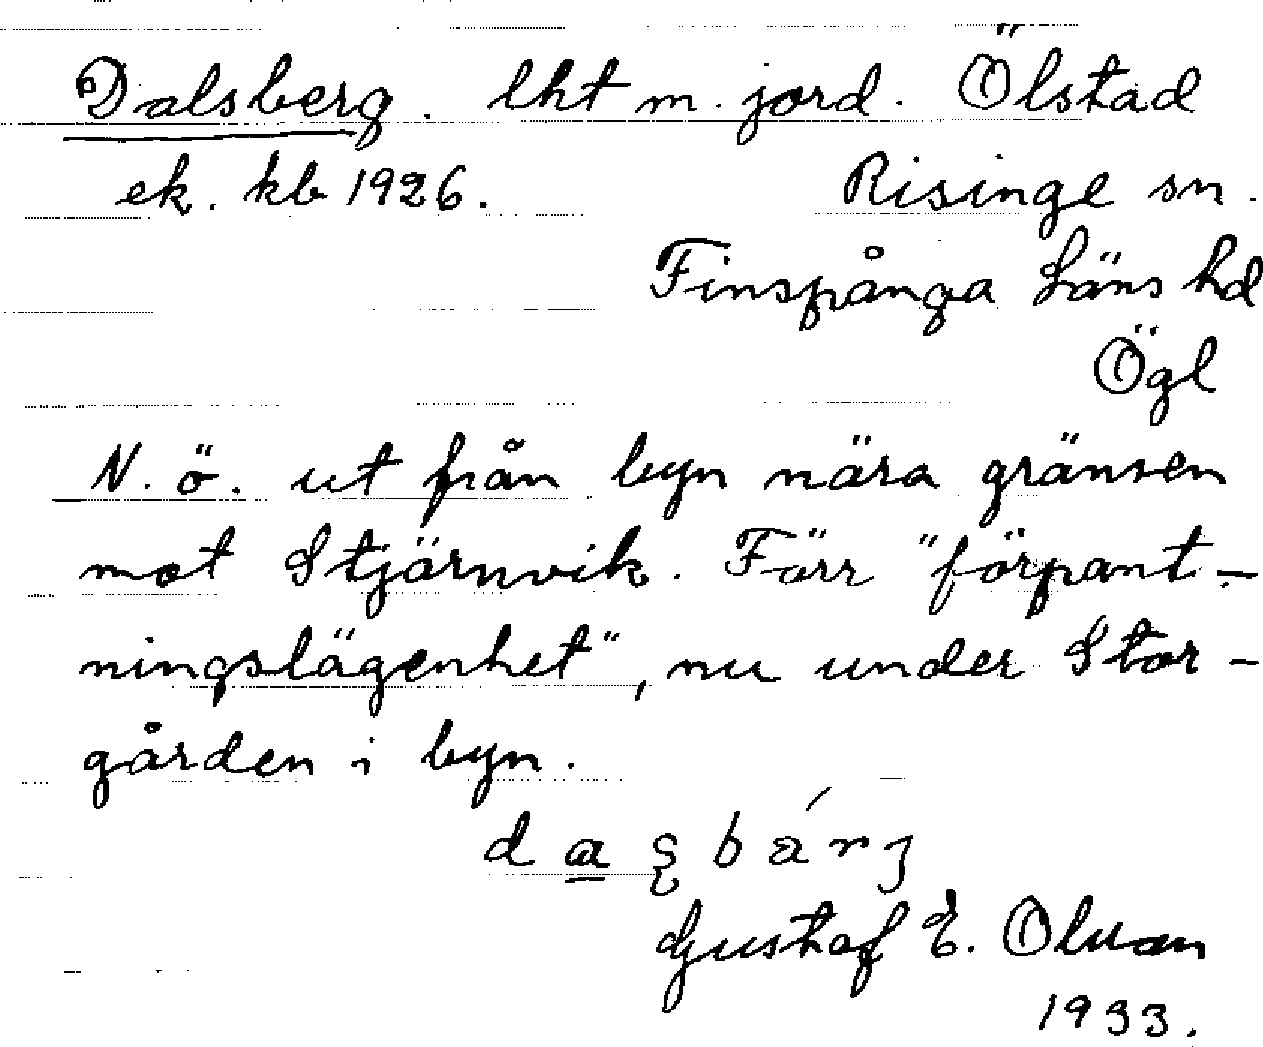 Dalsberg. lht m. jord. Ölstad
ek. kb 1926. Risinge sn.
Finspånga Läns hd
Ögl
N. ö. ut från byn nära gränsen
mot Stjärnvik. Förr "förpant-
ningslägenhet", nu under Stor-
gården i byn.
Gustaf E.
1933.